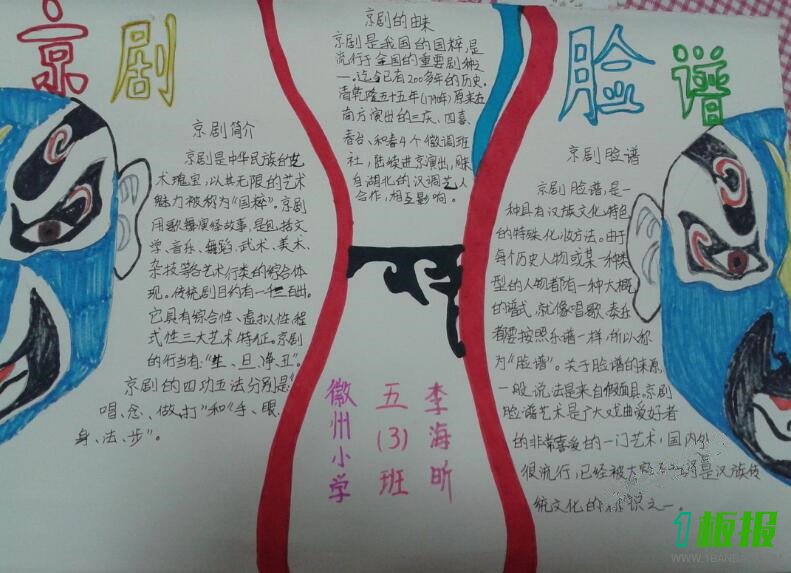 京剧
京剧简介
京剧是中华民族的艺
术瑰宝，以其无限的艺术
魅力被称为“国粹”。京剧
用歌舞演绎故事，是包括文
学、音乐、舞蹈、武术、美术、
杂技等各艺术行类的综合体
现。传统剧目约有一千三百出。
它具有综合性、虚拟性、程
式性三大艺术特征。京剧
的行当有：“生、旦、净、丑”。
京剧的四功五法分别是“
唱、念、做、打”和“手、眼、
身、法、步”。
京剧的由来
京剧是我国的国粹，是
流行于全国的重要剧种之
一。迄今已有200多年的历史。
清乾隆五十五年（1790年）原来在
南方演出的三庆、四喜、
春台、和春4个徽调班
社，陆续进京演出，同来
自湖北的汉调艺人
合作，相互影响。
徽州小学
五（3）班
李海昕
脸谱
京剧脸谱
京剧脸谱，是一
种具有汉族文化特色
的特殊化妆方法。由于
每个历史人物或某一种类
型的人物都有一种大概
的谱式，就像唱歌、奏乐
都要按照乐谱一样，所以称
为“脸谱”。关于脸谱的来源，
一般说法是来自假面具。京剧
脸谱艺术是广大戏曲爱好者
的非常喜爱的一门艺术，国内外
很流行，已经被大家
是汉族传
统文化的标识之一。
1板报
WWW.1BANBAO.COM